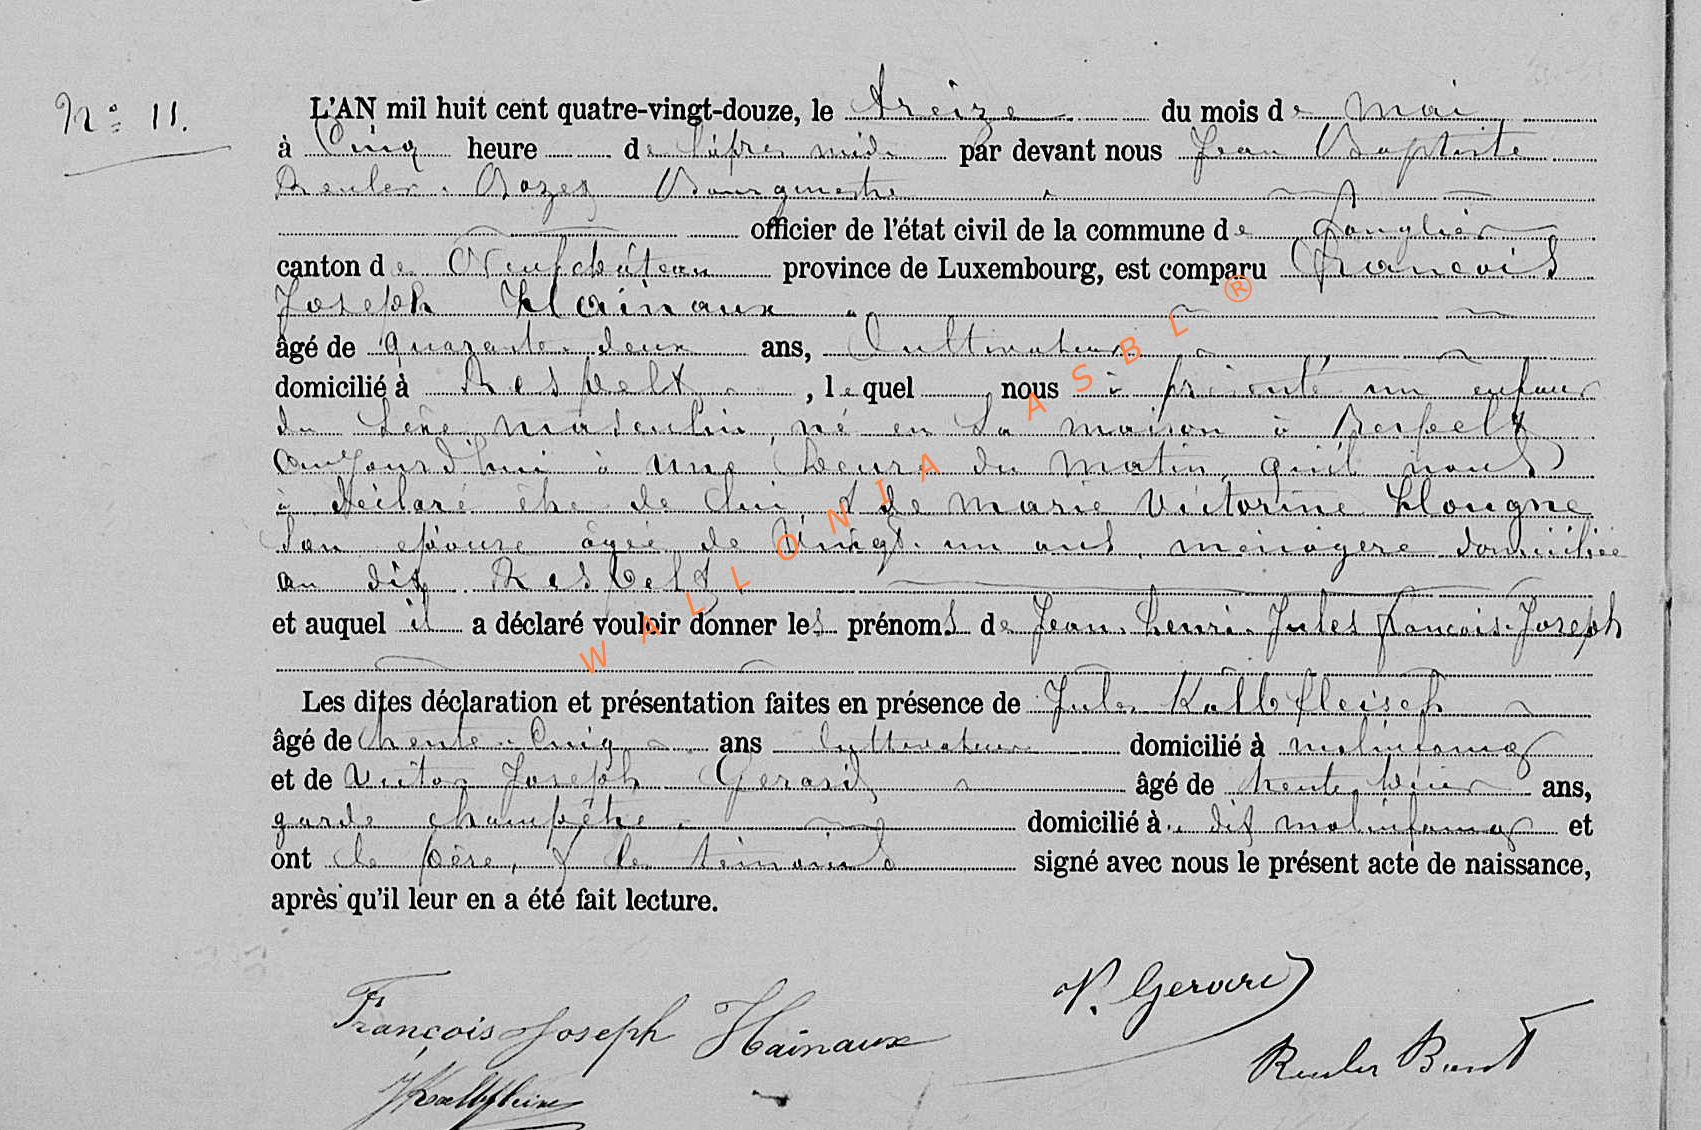 Nº 11.
L'AN mil huit cent quatre-vingt-douze, le treize du mois de mai
à Cinq heure de l'après midi par devant nous Jean Baptiste
Reuler Bozet Bourgmestre
officier de l'état civil de la commune de Longlier
canton de Neufchâteau province de Luxembourg, est comparu François
Joseph Hainaux
âgé de quarante deux ans, Cultivateur
domicilié à Respelt, lequel nous à présenté un enfant
du sexe masculin, né en sa maison à Respelt
aujourd'hui à une heure du matin, qu'il nous
à déclaré être de lui, & de Marie Victorine Hougne
son épouse âgée de vingt un ans, ménagère domiciliée
au dit Respelt
et auquel il a déclaré vouloir donner les prénoms de Jean Henri Jules François Joseph
Les dites déclaration et présentation faites en présence de Jules Kalbfleisch
âgé de trente Cinq ans Cultivateur domicilié à molinfaing
et de Victor Joseph Gerard âgé de trente ans,
garde champêtre domicilié à dit molinfaing et
ont le père, & les témoins signé avec nous le présent acte de naissance,
après qu'il leur en a été fait lecture.
François Joseph Hainaux
V. Gerard
JKalbfleisch
Reuler Bapt
WALLONIA ASBL ®